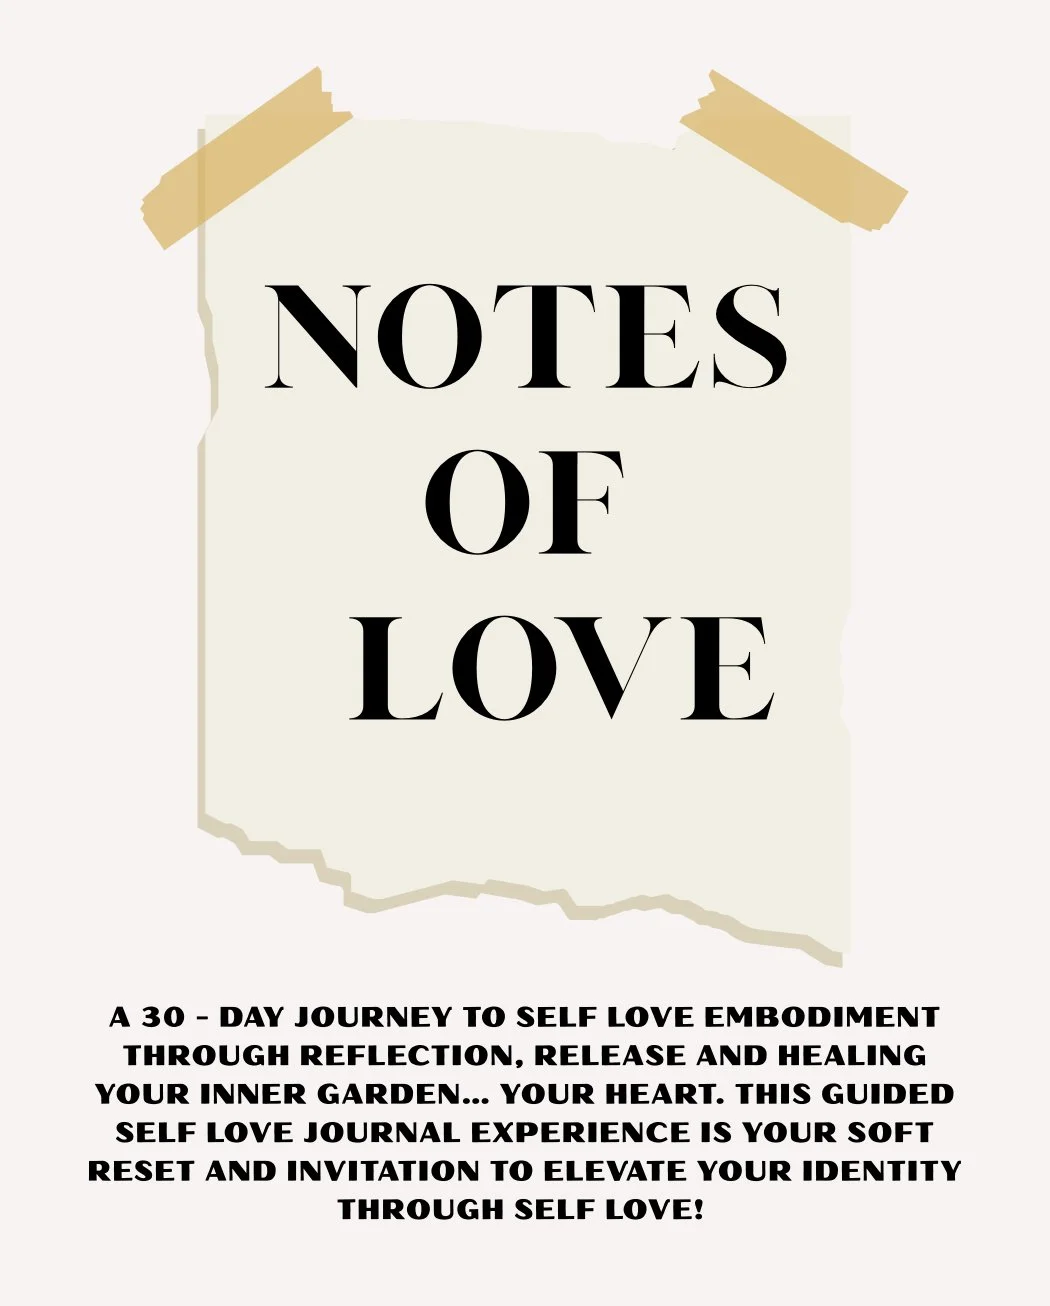 NOTES
OF
LOVE
A 30 - DAY JOURNEY TO SELF LOVE EMBODIMENT
THROUGH REFLECTION, RELEASE AND HEALING
YOUR INNER GARDEN... YOUR HEART. THIS GUIDED
SELF LOVE JOURNAL EXPERIENCE IS YOUR SOFT
RESET AND INVITATION TO ELEVATE YOUR IDENTITY
THROUGH SELF LOVE!